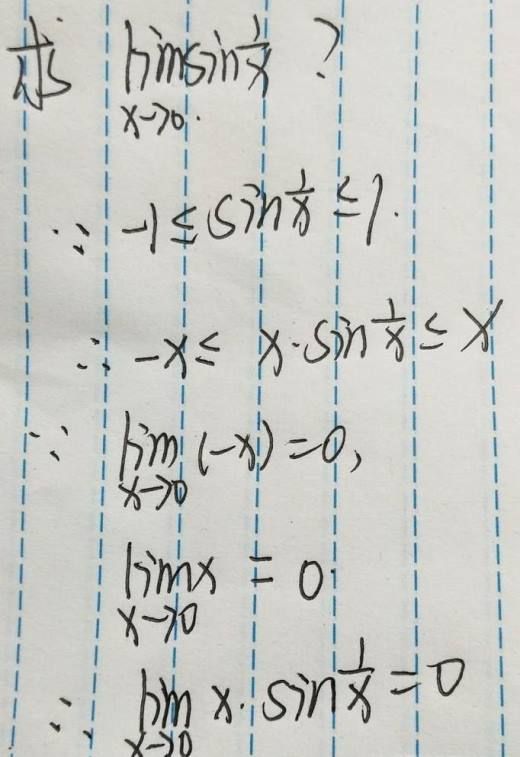 求 lim sin 1/x ?
x→0.
∵ -1 ≤ sin 1/x ≤ 1.
∴ -x ≤ x·sin 1/x ≤ x
∵ lim (-x) = 0,
x→0
lim x = 0
x→0
∴ lim x·sin 1/x = 0
x→0